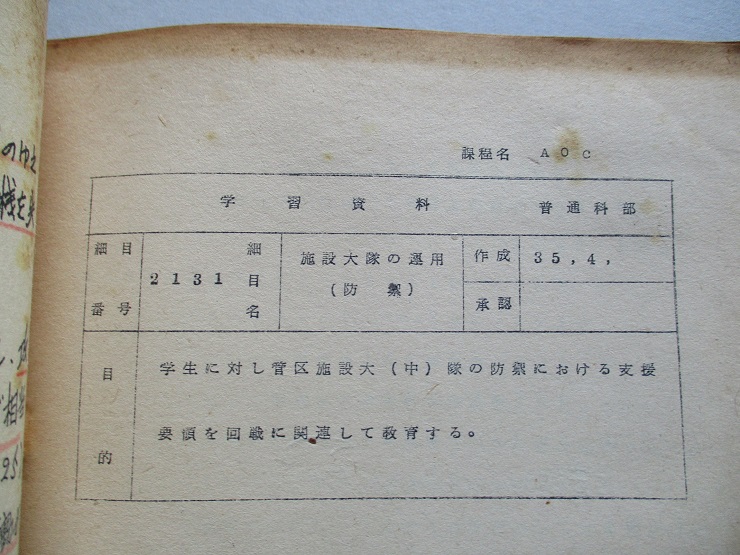 課程名 AOC
学習資料 普通科部
細目番号 2131 細目名 施設大隊の運用(防禦) 作成 35,4,
承認
目的 学生に対し管区施設大(中)隊の防禦における支援
要領を回戦に関連して教育する。
のゆえ
相
25